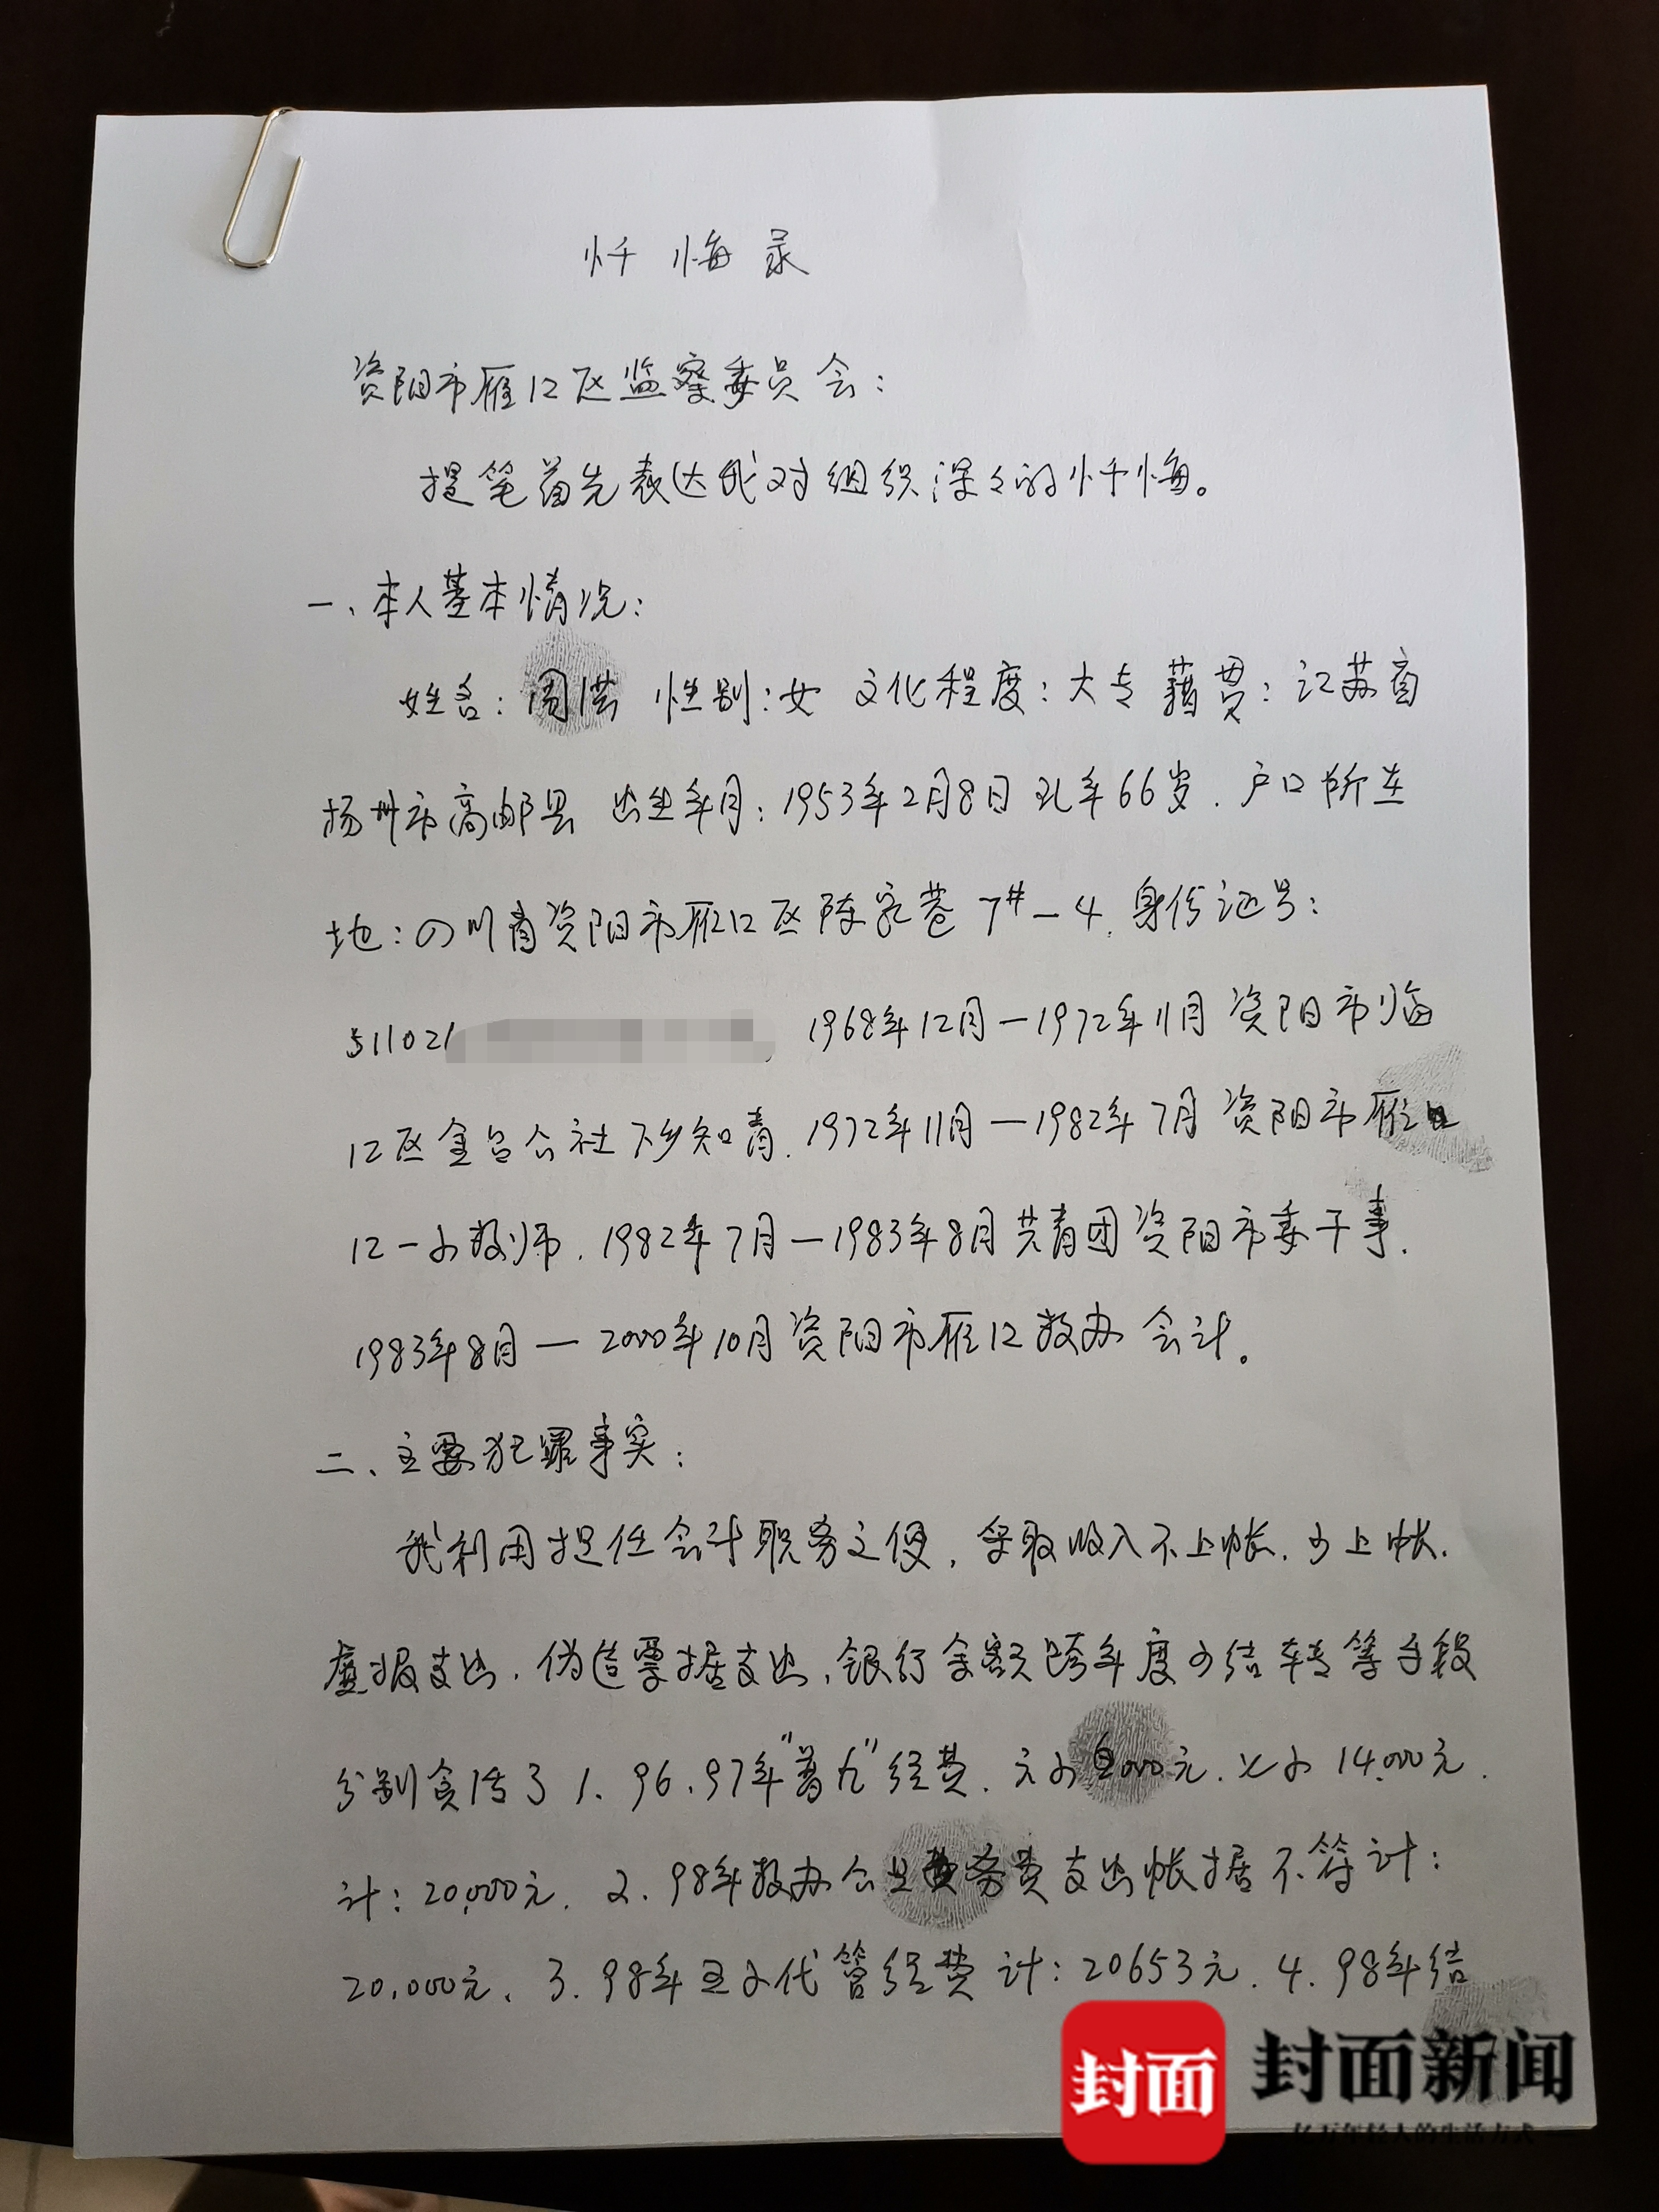 忏悔录
资阳市雁江区监察委员会：
提笔首先表达我对组织深々的忏悔。
一、本人基本情况：
姓名：周洪 性别：女 文化程度：大专 籍贯：江苏省
扬州市高邮县 出生年月：1953年2月8日 现年66岁. 户口所在
地：四川省资阳市雁江区陈家巷7#-4. 身份证号：
511021 1968年12月—1972年11月资阳市临
江区金台公社下乡知青. 1972年11月—1982年7月资阳市雁
江一小教师. 1982年7月—1983年8月共青团资阳市委干事.
1983年8月—2000年10月资阳市雁江教办会计。
二、主要犯罪事实：
我利用担任会计职务之便, 采取收入不上帐. 少上帐.
虚报支出. 伪造票据支出, 银行余额跨年度少结转等手段
分别贪污了 1. 96.97年"普九"经费. 六小000元. 七小14,000元.
计: 20,000元. 2. 98年教办公务费支出帐据不符计:
20,000元. 3. 98年小代管经费计: 20653元. 4. 98年结
封面
封面新闻
亿万年轻人的生活方式